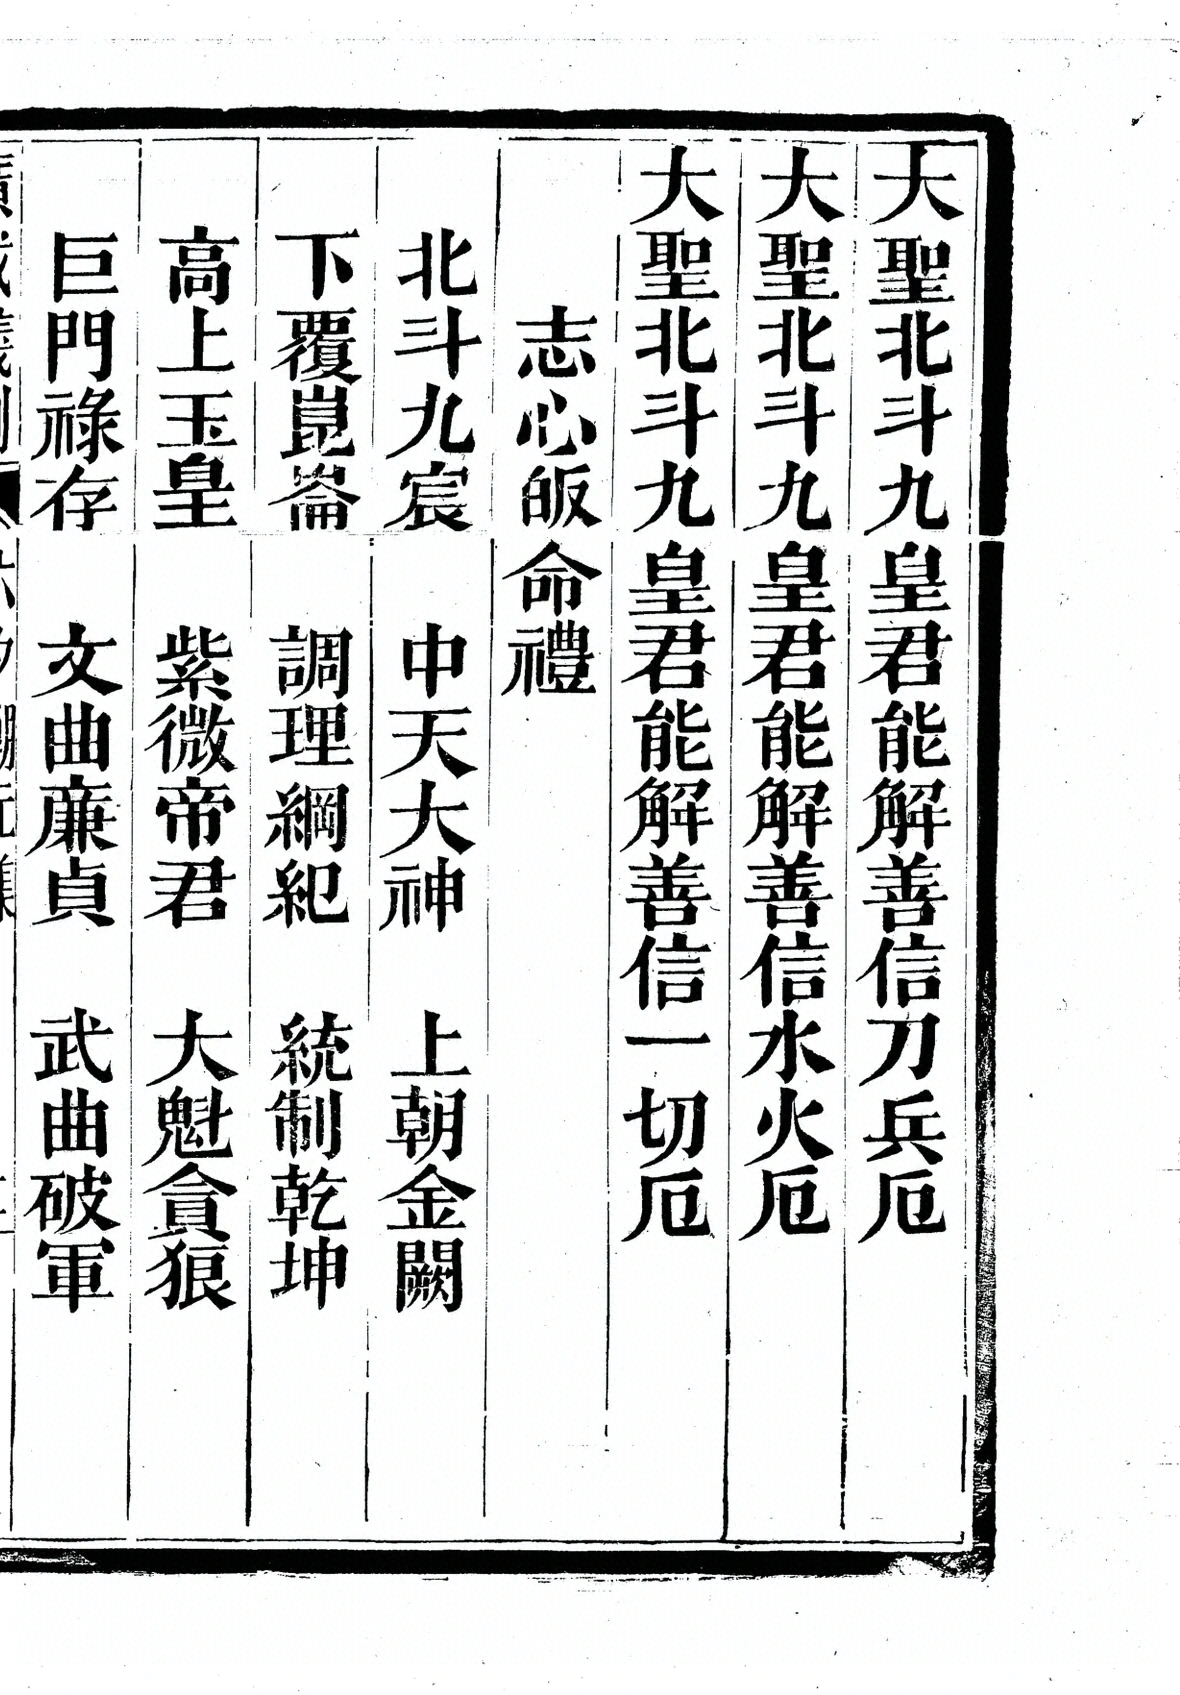 大聖北斗九皇君能解善信刀兵厄
大聖北斗九皇君能解善信水火厄
大聖北斗九皇君能解善信一切厄
志心皈命禮
北斗九宸　中天大神　上朝金闕
下覆崑崙　調理綱紀　統制乾坤
高上玉皇　紫微帝君　大魁貪狼
巨門祿存　文曲廉貞　武曲破軍